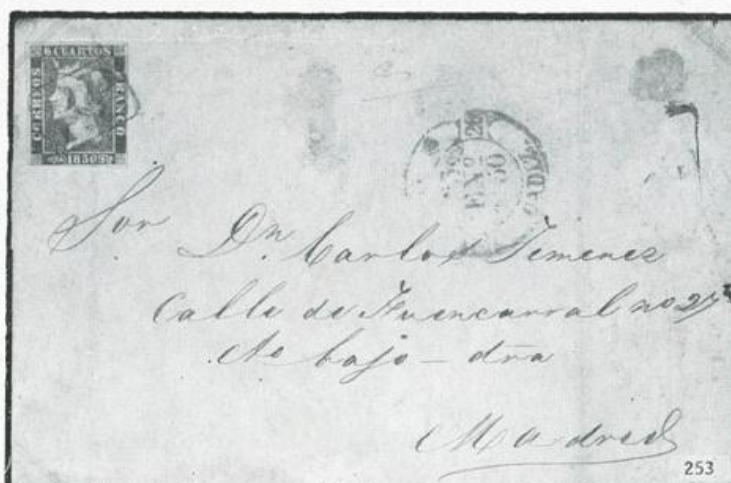 6 CUARTOS
CORREOS
FRANCO
1850
ENE
50
Sor
Dn. Carlos Jimenez
Calle de Fuencarral no 27
bajo - dra
Madrid
253